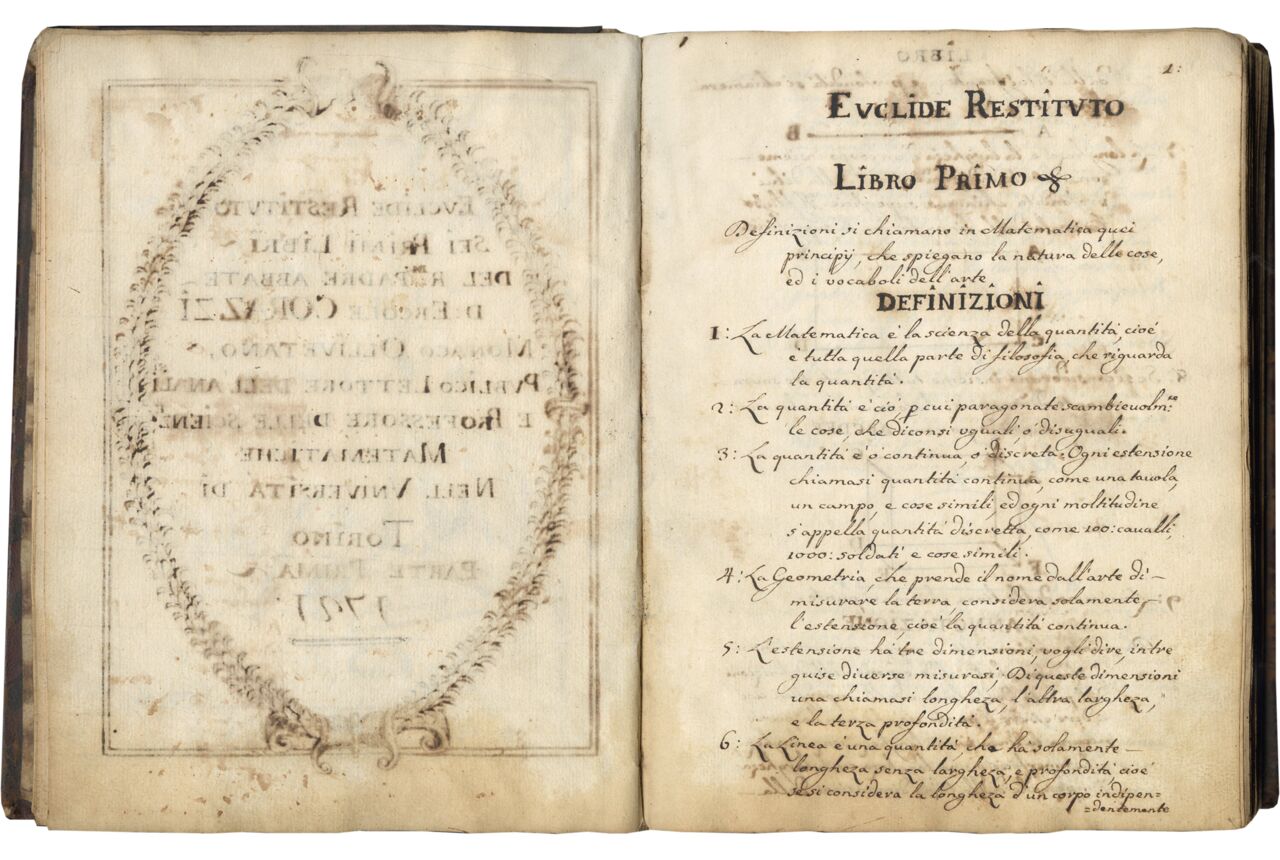 EVCLIDE RESTITVTO
SEI PRIMI LIBRI
DEL R.mo PADRE ABBATE
D. ERCOLE CORAZZI
MONACO OLLIVETANO,
PVBLICO LETTORE DELL'ANALI
E PROFESSORE DELLE SCIENZE
MATEMATICHE
NELL VNIVERSITÀ DI
TORINO
PARTE PRIMA
1721
LIBRO
1:
EVCLIDE RESTITVTO
LIBRO PRIMO
Definizioni si chiamano in Matematica quei
principij, che spiegano la natura delle cose,
ed i vocaboli dell'arte
DEFINIZIONI
1: La Matematica é la scienza della quantitá, cioé
é tutta quella parte di filosofia, che riguarda
la quantitá.
2: La quantitá é ció, p cui paragonate scambievolm.te
le cose, che diconsi vguali ó disuguali.
3: La quantitá é ó continua, ó discreta. Ogni estensione
chiamasi quantitá continua, come una tauola,
un campo, e cose simili ed ogni moltitudine
s'appella quantitá discretta, come 100: caualli,
1000: soldati e cose simili.
4: La Geometria, che prende il nome dall'arte di –
misurare la terra, considera solamente –
l'estensione, cioé la quantitá continua.
5: L'estensione há tre dimensioni, vogli dire, in tre
guise diverse misurasi, Di queste dimensioni
una chiamasi longheza, l'altra largheza,
e la terza profonditá.
6: La Linea é una quantitá, che ha solamente –
longheza senza largheza, e profonditá, cioé
se si considera la longheza d'un corpo indipen=
=dentemente